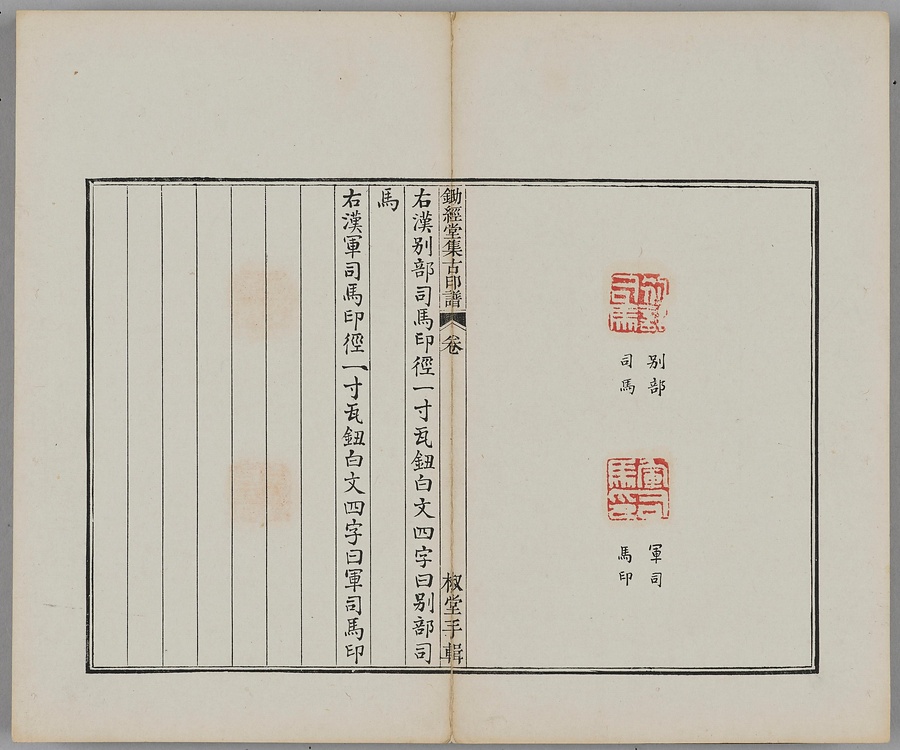 别部
司馬
別部
司馬
軍司
馬印
軍司
馬印
鋤經堂集古印譜
卷
椒堂手輯
右漢别部司馬印徑一寸瓦鈕白文四字曰别部司
馬
右漢軍司馬印徑一寸瓦鈕白文四字曰軍司馬印